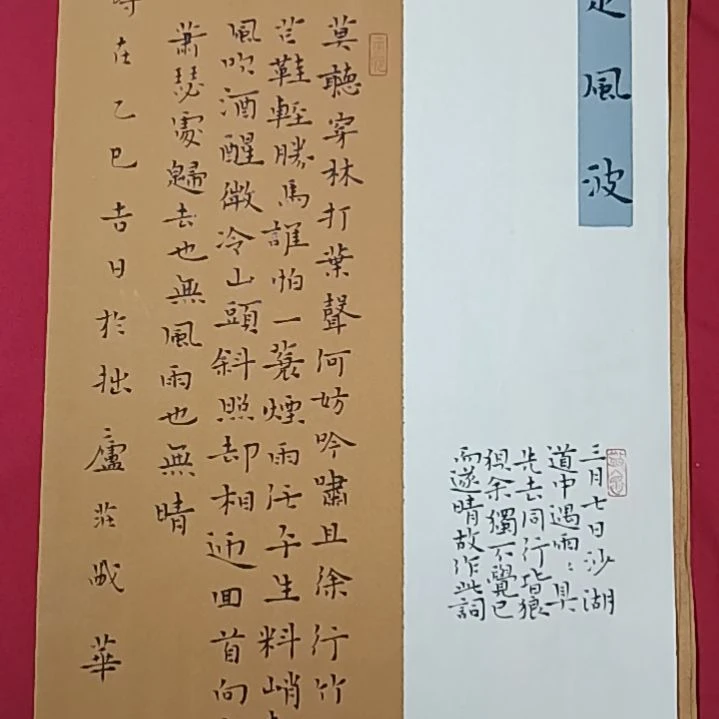 定風波
三月七日沙湖
道中遇雨〻具
先去同行皆狼
狽余獨不覺已
而遂晴故作此詞
莫聽穿林打葉聲何妨吟嘯且徐行竹
芒鞋輕勝馬誰怕一蓑煙雨任平生料峭
風吹酒醒微冷山頭斜照却相迎回首向
蕭瑟處歸去也無風雨也無晴
時在乙巳吉日於拙廬莊成華